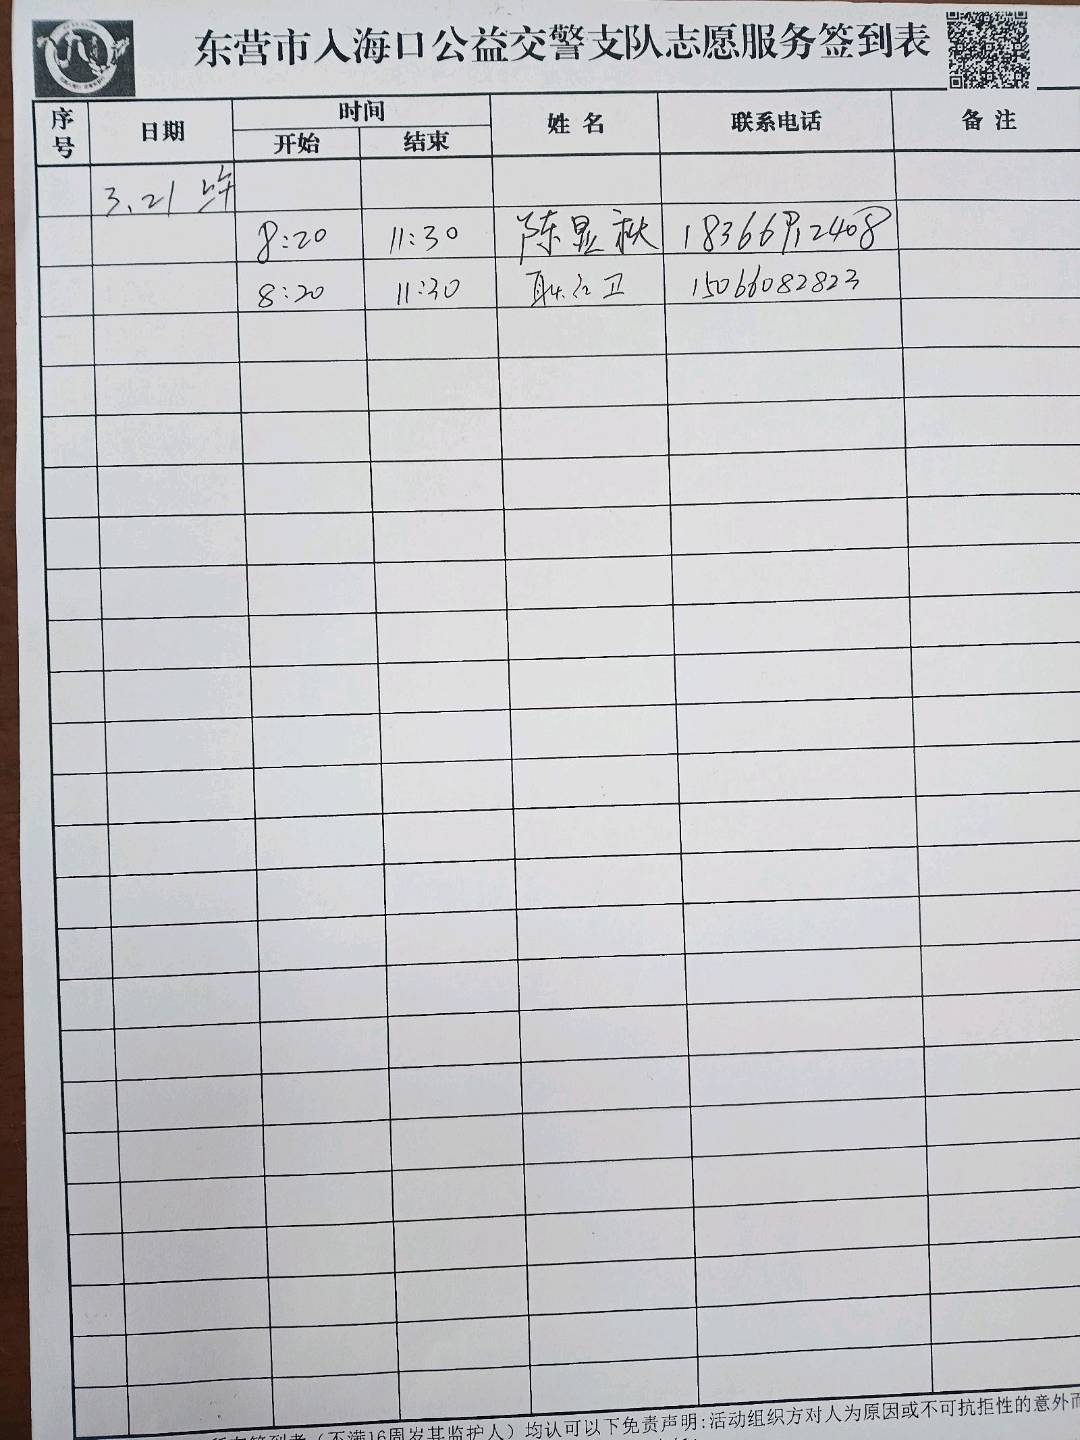 东营市入海口公益交警支队志愿服务签到表
序号 日期 时间 开始 结束 姓名 联系电话 备注
3.21 上午
8:20 11:30 陈显秋
8:20 11:30 耿红卫 15066082823
(不满16周岁其监护人)均认可以下免责声明:活动组织方对人为原因或不可抗拒性的意外而